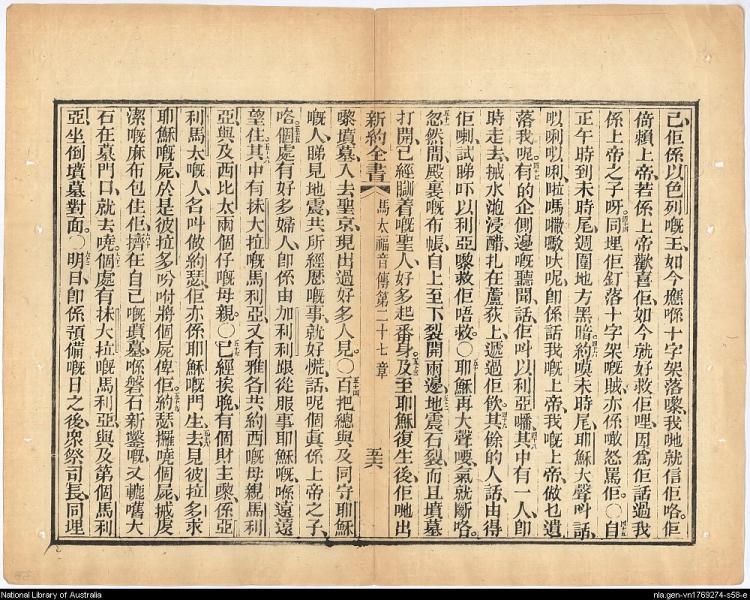 己、佢係以色列嘅王、如今應喺十字架落嚟、我哋就信佢咯。佢
倚賴上帝、若係上帝歡喜佢、如今就好救佢哩、因爲佢話過、我
係上帝之子呀。同埋佢釘落十字架嘅賊、亦係噉怒罵佢。〇自
正午時到未時尾、週圍地方黑暗、約嘆未時尾、耶穌大聲呌話、
以唎以唎、啦嗎
呢、卽係話我嘅上帝、我嘅上帝、做乜遺
落我呢。有的企側邊嘅聽聞話、佢呌以利亞
其中有一人、卽
時走去、搣水泡浸醋、扎在蘆荻上、遞過佢飲。其餘的人話、由得
佢喇、試睇吓以利亞嚟救佢唔救。〇耶穌再大聲嗌、氣就斷咯。
忽然間、殿裏嘅布帳、自上至下裂開兩邊、地震石裂、而且墳墓
打開、已經瞓着嘅聖人、好多起番身、及至耶穌復生後、佢哋出
新約全書 馬太福音傳第二十七章 五六
嚟墳墓、入去聖京、現出過好多人見。〇百把總與及同守耶穌
嘅人、睇見地震、共所經歷嘅事、就好慌、話、呢個眞係上帝之子、
咯。個處有好多婦人、卽係由加利利跟從服事耶穌嘅、喺遠遠
望住、其中有抹大拉嘅馬利亞、又有雅各共約西嘅母親馬利
亞、與及西比太兩個仔嘅母親。〇已經挨晚、有個財主嚟、係亞
利馬太嘅人、名叫做約瑟、佢亦係耶穌嘅門生、去見彼拉多、求
耶穌嘅屍、於是彼拉多吩咐將個屍俾佢。約瑟攞嘵個屍、搣度
潔嘅麻布包住佢、擠在自己嘅墳墓、喺磐石新鑿嘅、又轆嚿大
石在墓門口、就去嘵。個處有抹大拉嘅馬利亞、與及第個馬利
亞、坐倒墳墓對面。〇明日、卽係預備嘅日之後、衆祭司長、同埋
National Library of Australia
nla.gen-vn1769274-s58-e